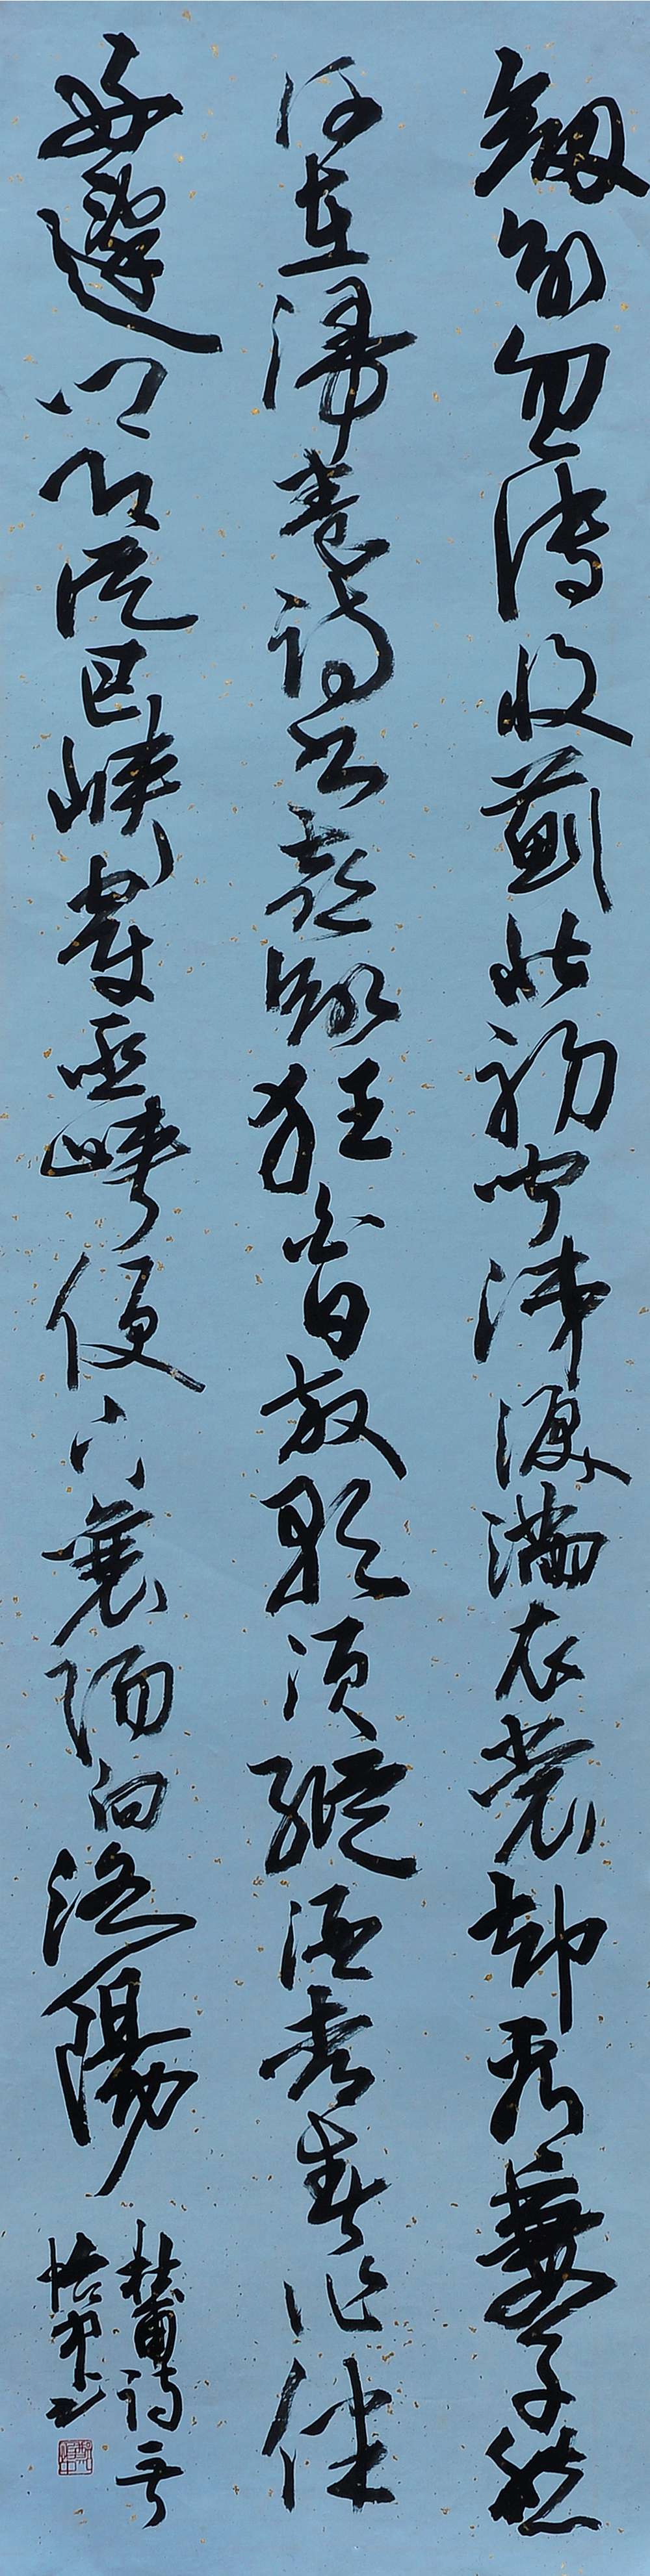 劔外忽傳收薊北初聞涕淚滿衣裳却看妻子愁
何在漫卷詩書喜欲狂白日放歌須縱酒青春作伴
好還鄉即從巴峽穿巫峽便下襄陽向洛陽
杜甫詩